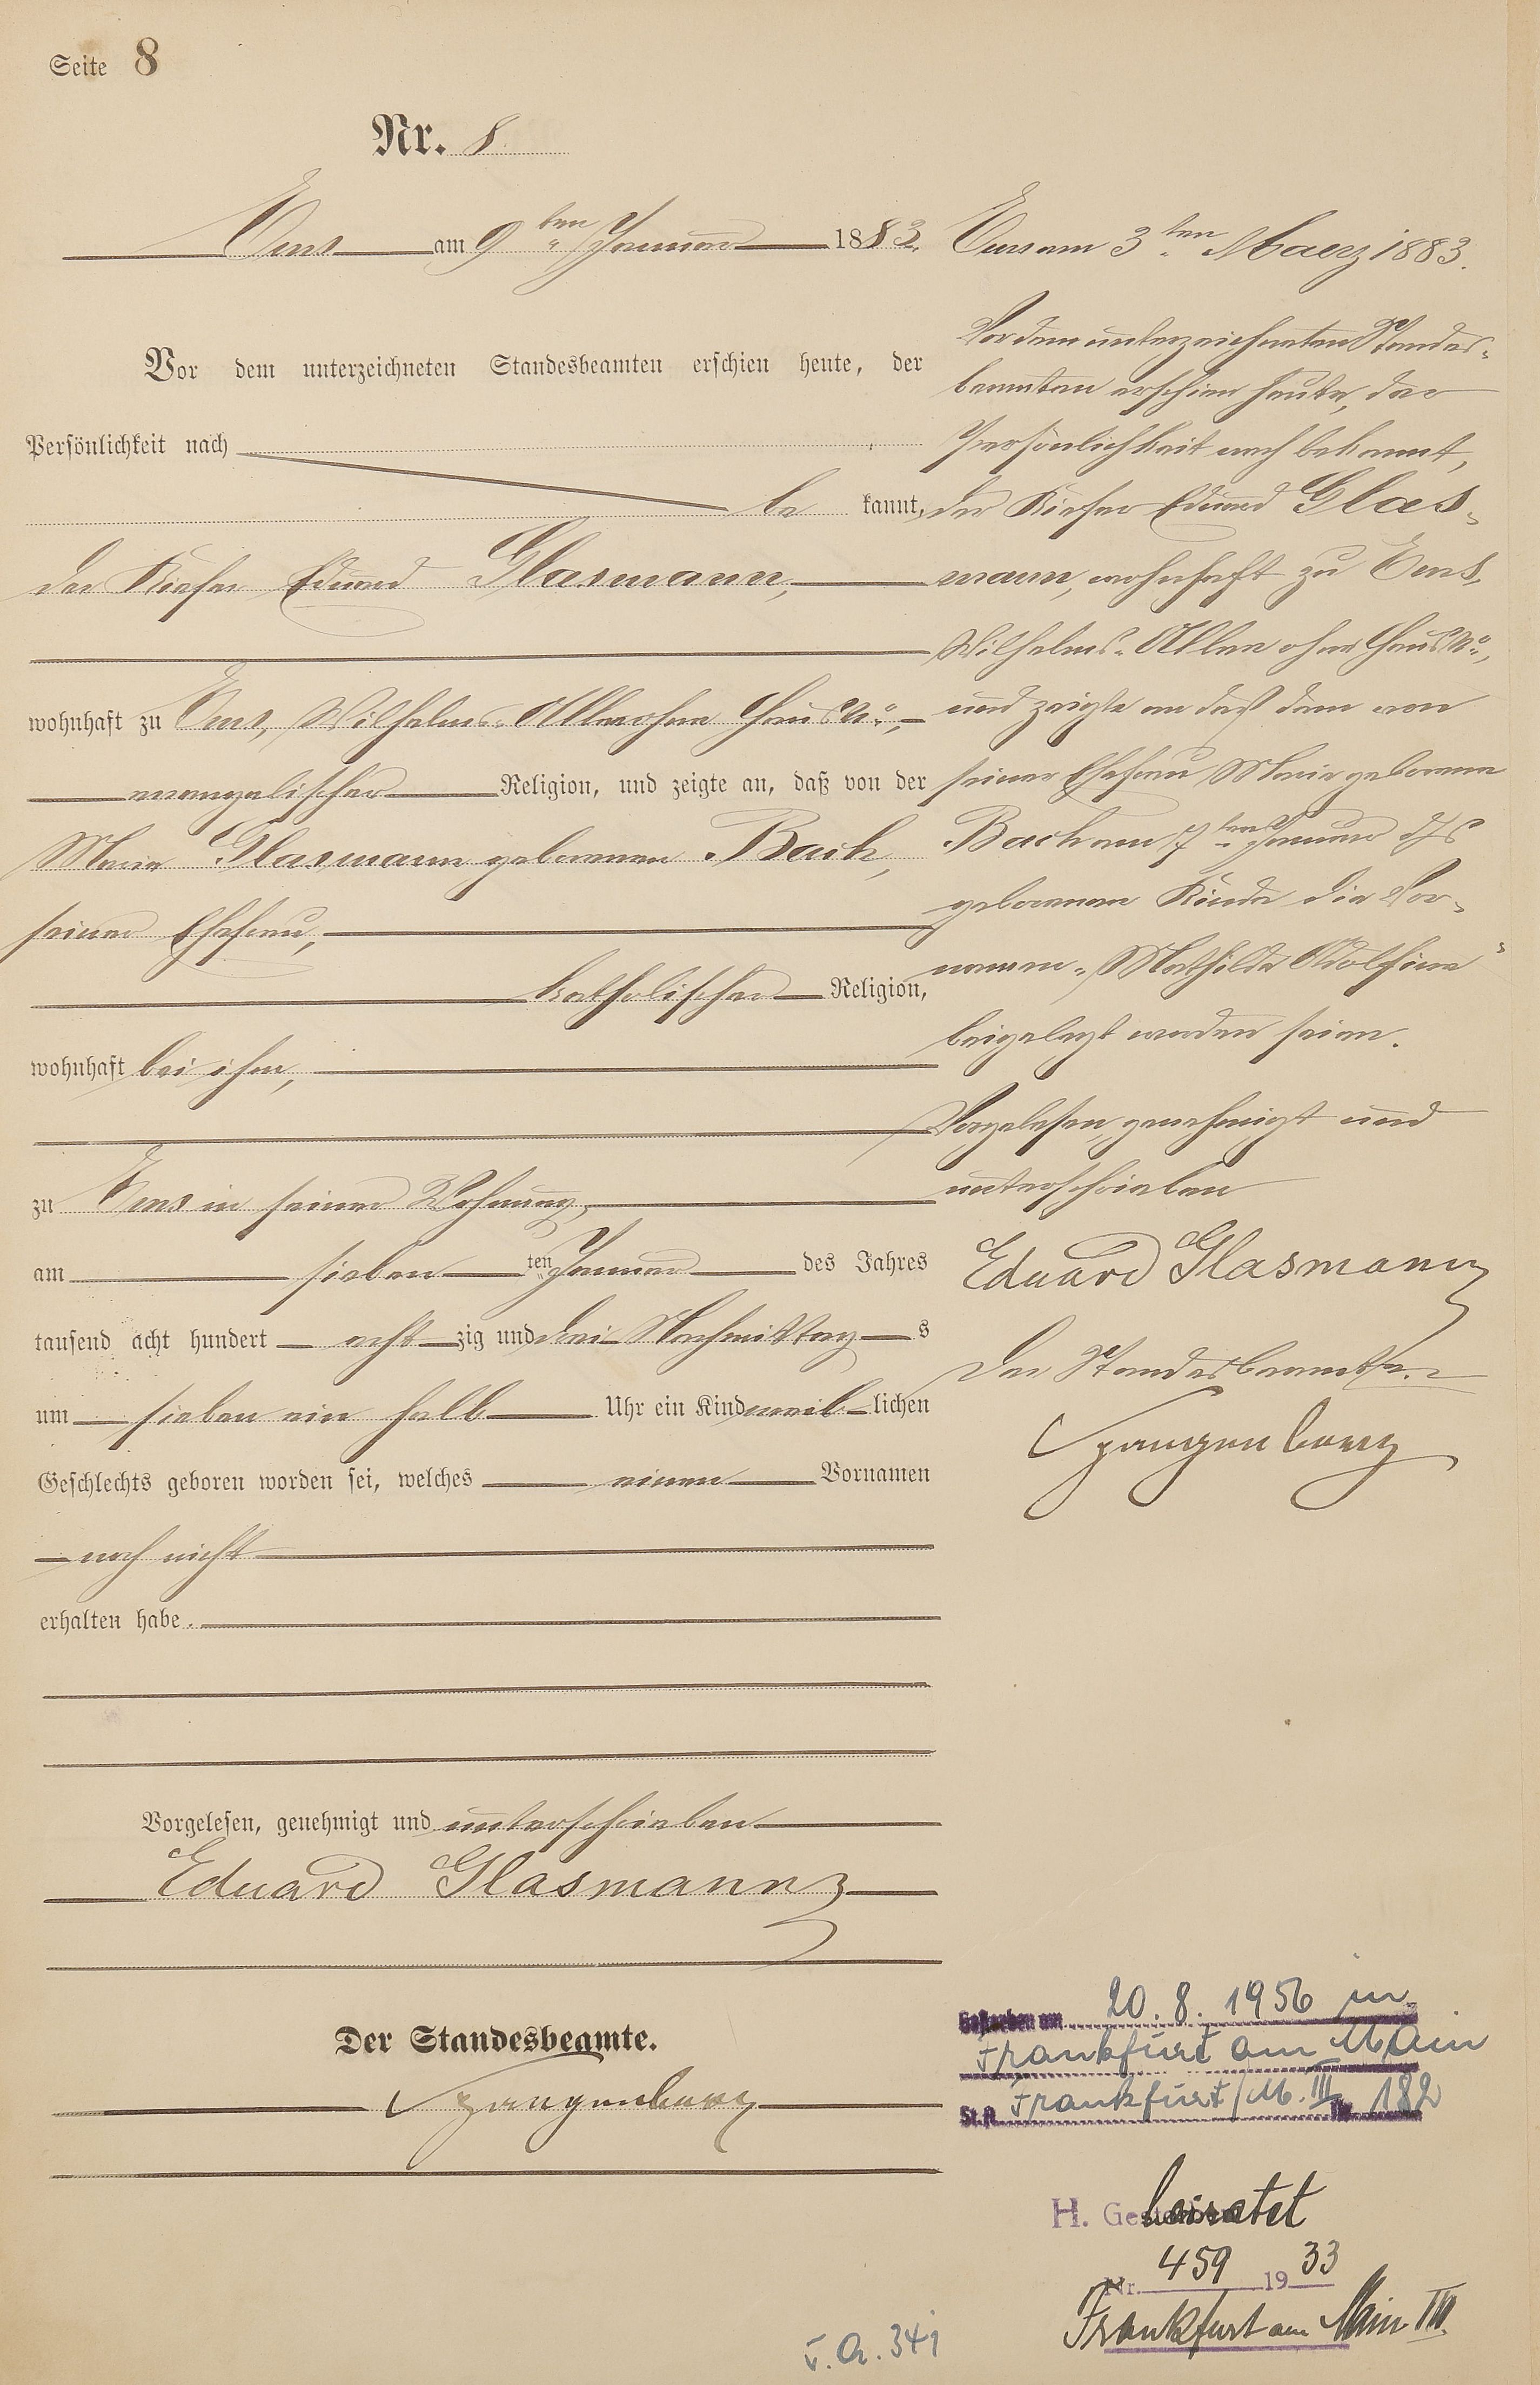 Seite 8
Nr. 8.
Ems am 9ten Januar 1883.
Vor dem unterzeichneten Standesbeamten erschien heute, der
Persönlichkeit nach
be kannt,
der Küfer Eduard Glasmann,
wohnhaft zu Ems, Wilhelms-Allee ohne Haus No,
evangelischer Religion, und zeigte an, daß von der
Marie Glasmann geborenen Bach,
seiner Ehefrau,
katholischer Religion,
wohnhaft bei ihm,
zu Ems in seiner Wohnung,
am sieben ten Januar des Jahres
tausend acht hundert acht zig und drei Nachmittag s
um sieben ein halb Uhr ein Kind weib lichen
Geschlechts geboren worden sei, welches einen Vornamen
noch nicht
erhalten habe.
Vorgelesen, genehmigt und unterschrieben
Eduard Glasmann
Der Standesbeamte.
Spangenberg
Ems am 3ten Maerz 1883.
Vor dem unterzeichneten Standes-
beamten erschien heute, der
Persönlichkeit nach bekannt,
der Küfer Eduard Glas-
mann, wohnhaft zu Ems,
Wilhelms-Allee ohne Haus No,
und zeigte an daß dem von
seiner Ehefrau Marie geborene
Bach am 7ten Januar ds Js
geborenen Kinde die Vor-
namen "Mathilde Adolphine"
beigelegt worden seien.
Vorgelesen, genehmigt und
unterschrieben
Eduard Glasmann
Der Standesbeamte.
Spangenberg
Gestorben am 20.8.1956 in
Frankfurt am Main
St.A. Frankfurt/M. III Nr. 182
H. Geheiratet
Nr. 459 1933
Frankfurt am Main III
v. A. 341